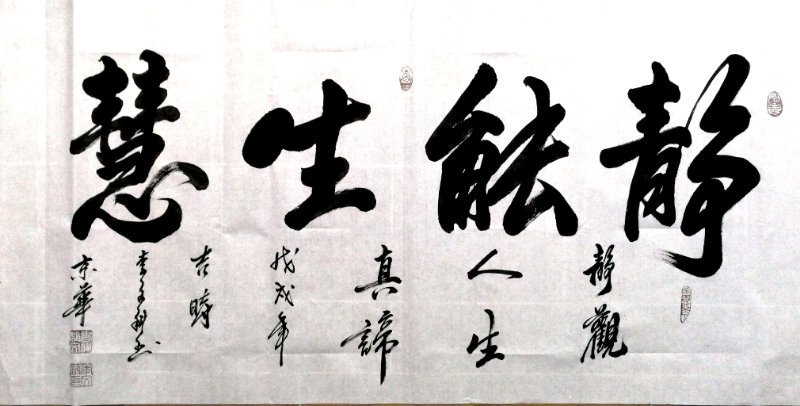 静能生慧
静觀
人生
真諦
戊戌年
吉時
京華